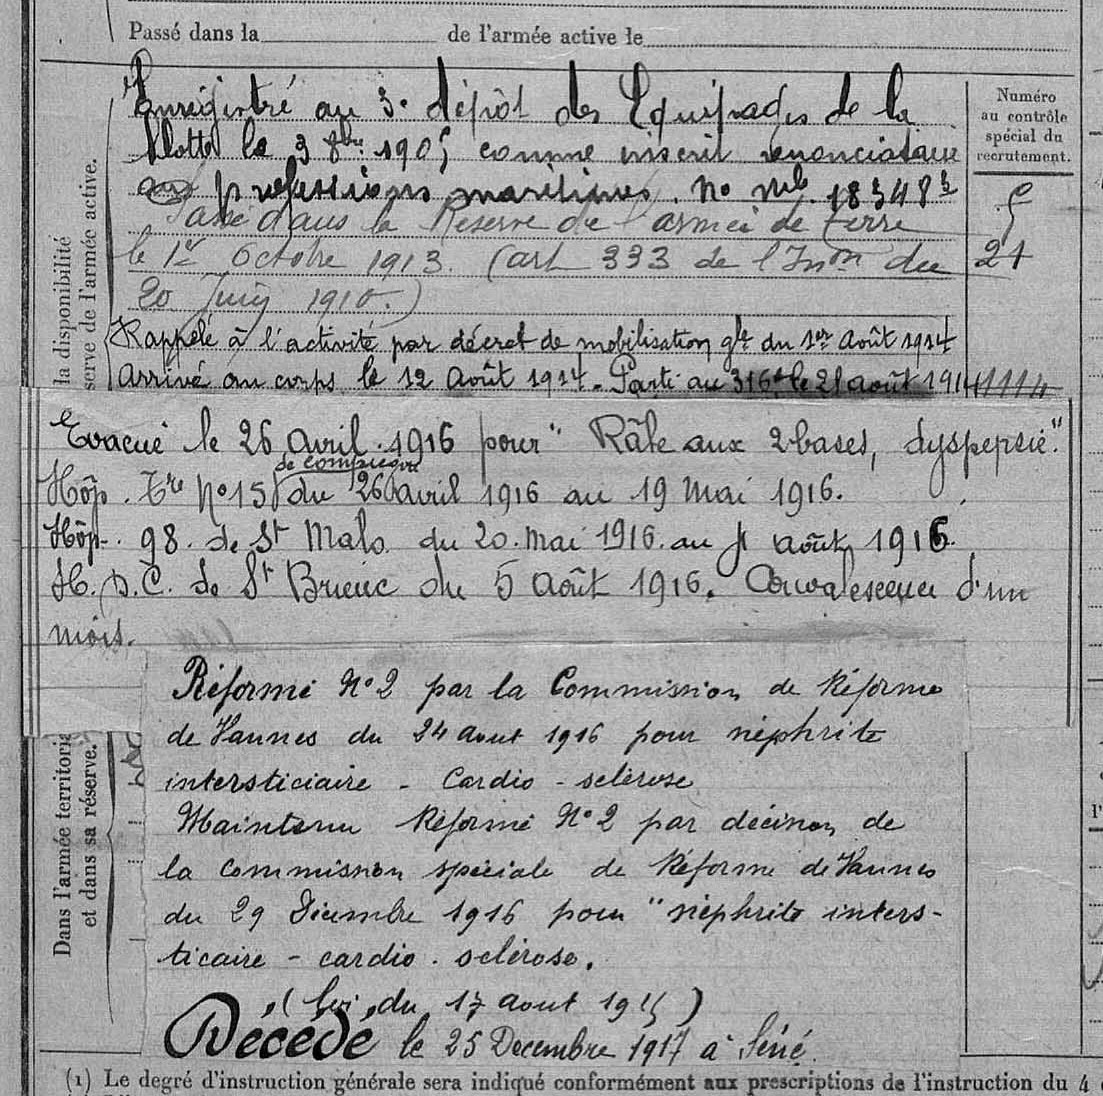 Passé dans la de l'armée active le
Enregistré au 3e dépôt des Equipages de la
flotte le 3 8bre 1905 comme inscrit renonciataire
aux professions maritimes. No Mle 18348
Passé dans la Réserve de l'armée de terre
le 1er Octobre 1913. (art 333 de l'Inon du
20 Juin 1910.)
Rappelé à l'activité par décret de mobilisation gle du 1er Août 1914
Arrivé au corps le 12 Août 1914. Parti au 316e le 21 août 1914
Numéro
au contrôle
spécial du
recrutement.
21
la disponibilité
serve de l'armée active.
Evacué le 26 avril 1916 pour "Râle aux 2 bases, dyspepsie."
de compiègne
Hôp. Tre No 15 du 26 avril 1916 au 19 Mai 1916.
Hôp. 98 de St Malo du 20 Mai 1916 au 4 août 1916.
H. D. C. de St Brieuc du 5 Août 1916. Convalescence d'un
mois.
Réformé No 2 par la Commission de Réforme
de Vannes du 24 aout 1916 pour néphrite
intersticiaire - Cardio - sclérose
Maintenu Réformé No 2 par décision de
la Commission spéciale de Réforme de Vannes
du 29 Décembre 1916 pour "néphrite inters-
ticaire - cardio - sclérose.
(Loi du 17 aout 1915)
Décédé le 25 Decembre 1917 à Séné.
Dans l'armée territoria
et dans sa réserve.
(1) Le degré d'instruction générale sera indiqué conformément aux prescriptions de l'instruction du 4